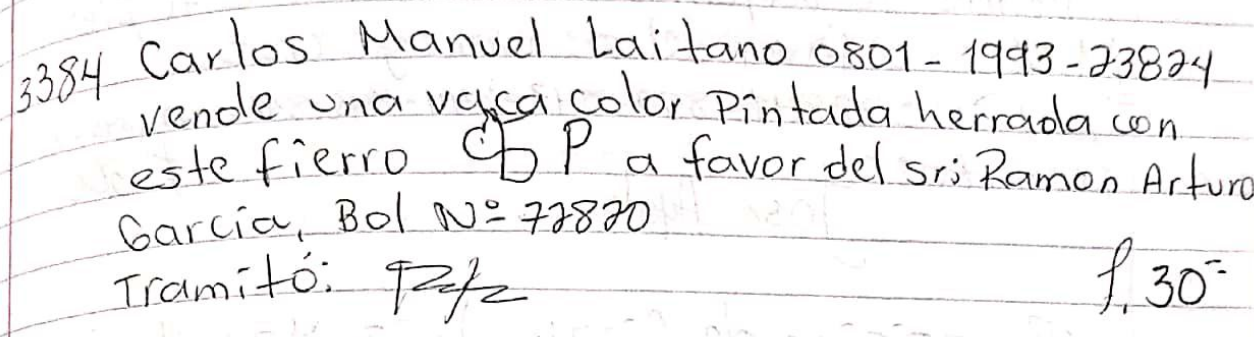 3384 Carlos Manuel Laitano 0801-1993-23824
vende una vaca color Pintada herrada con
este fierro P a favor del sr; Ramon Arturo
Garcia, Bol Nº 77820
Tramitó:
f, 30=